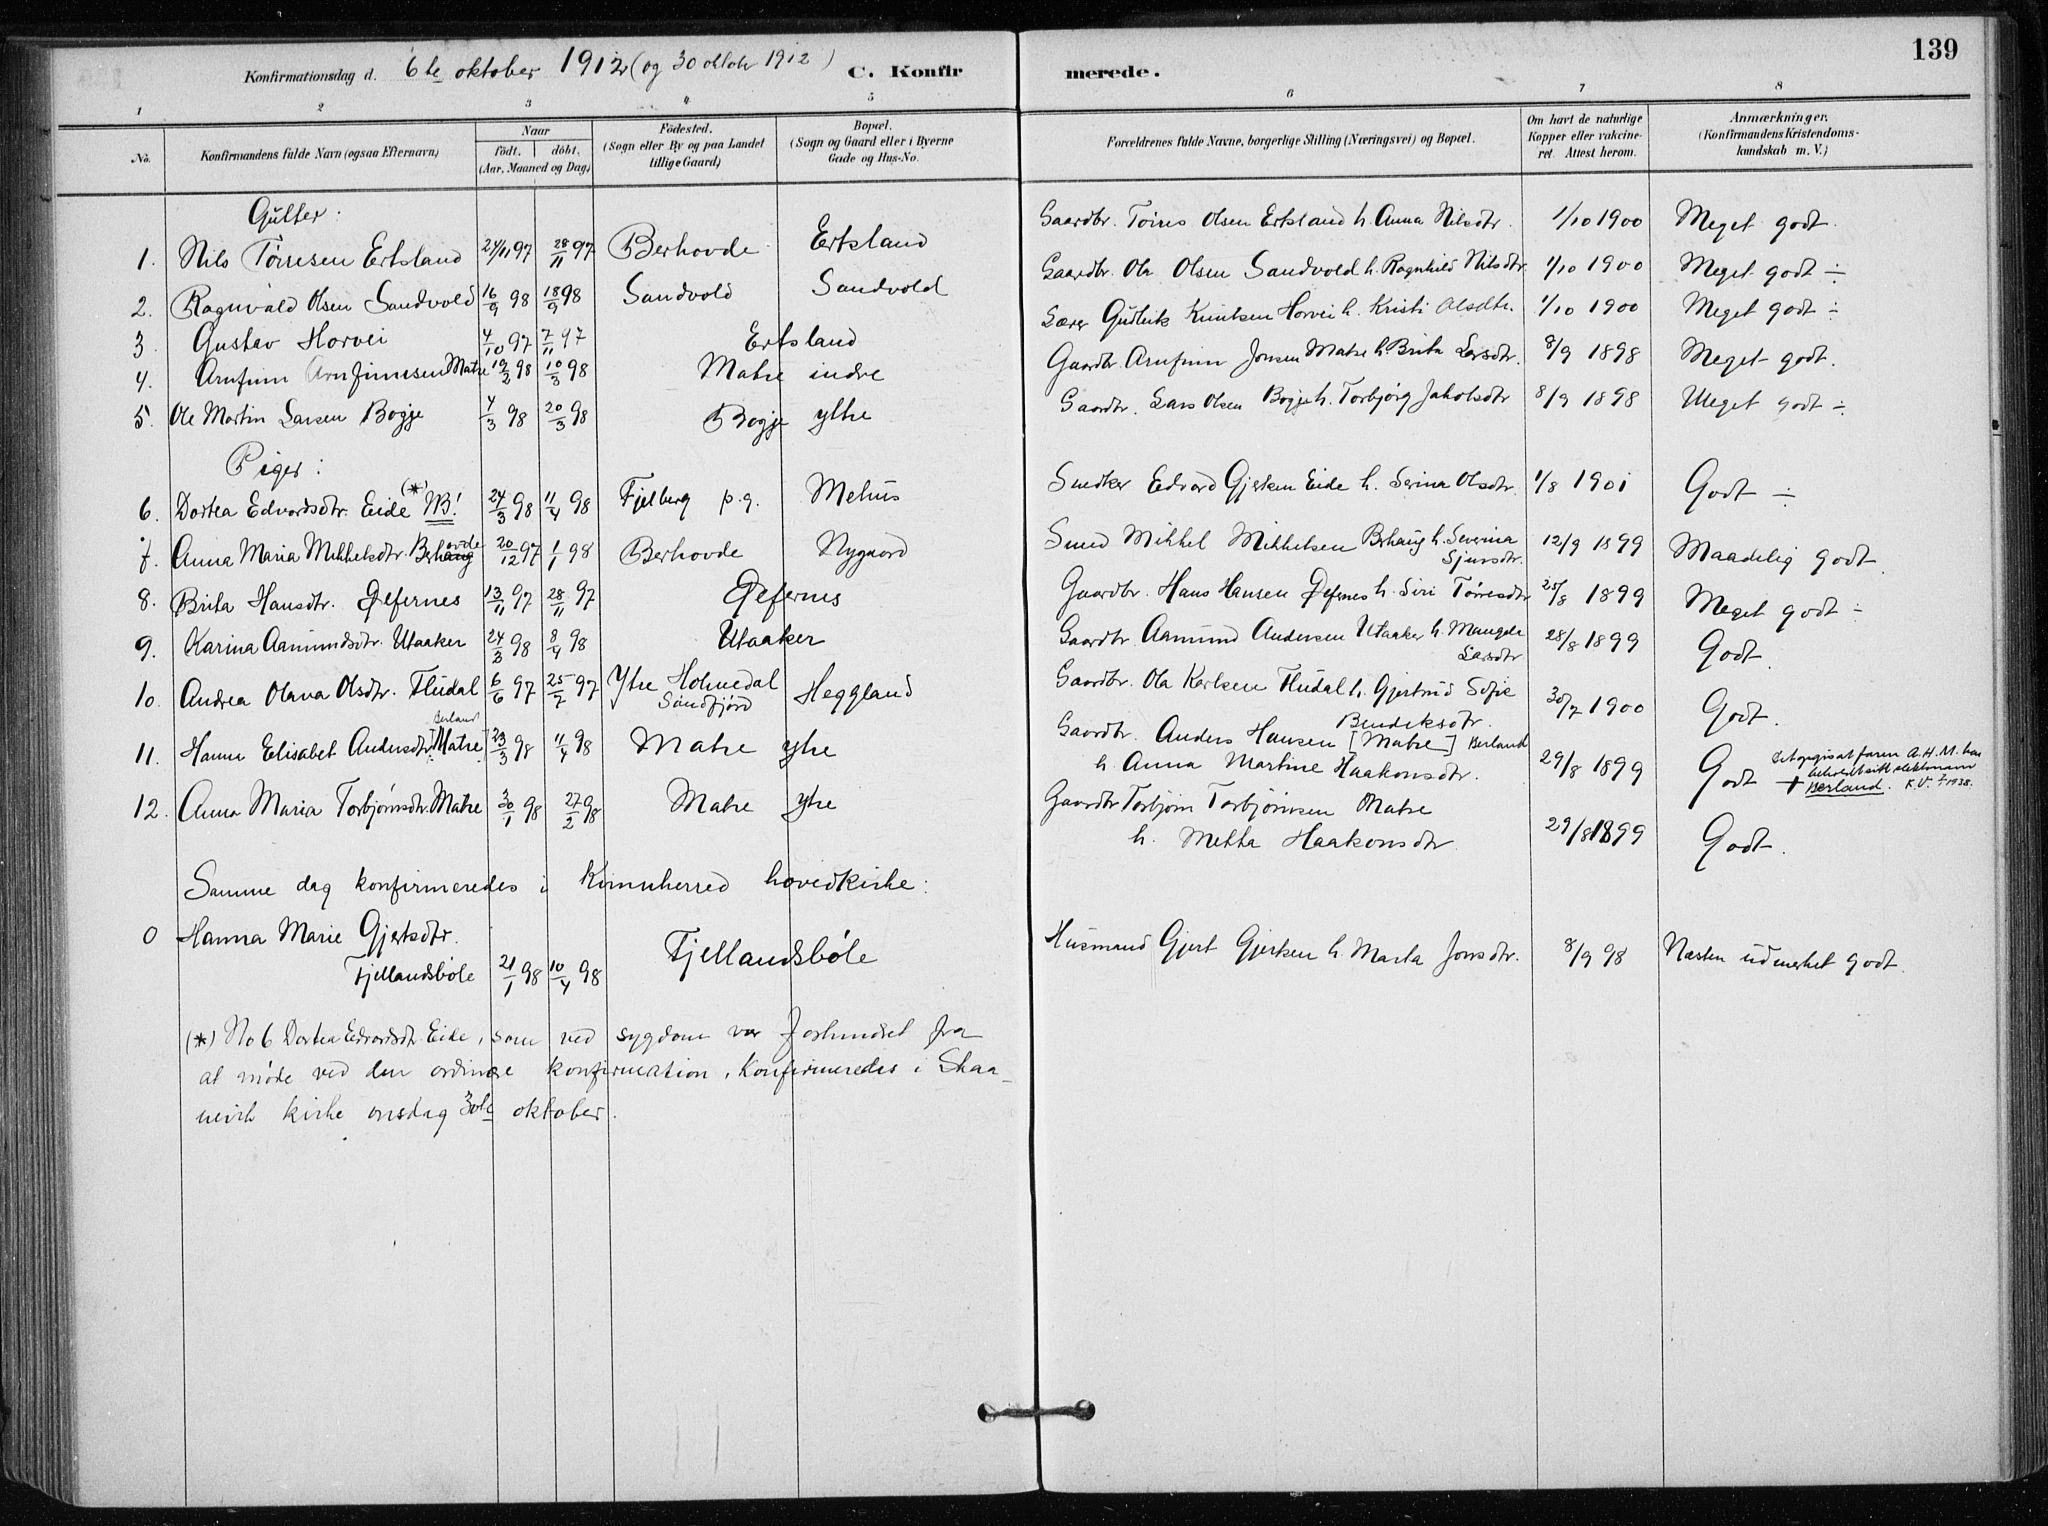 139
Konfirmationsdag d. 6te oktober 1912 (og 30 oktobr 1912) C. Konfirmerede.
1 2 3 4 5 6 7 8
No. Konfirmandens fulde Navn (ogsaa Efternavn) Naar født. døbt. (Aar, Maaned og Dag) Fødested. (Sogn eller By og paa Landet tillige Gaard) Bopæl. (Sogn og Gaard eller i Byerne Gade og Hus-No. Forældrenes fulde Navne, borgerlige Stilling (Næringsvei) og Bopæl. Om havt de naturlige Kopper eller vakcineret. Attest herom. Anmærkninger. (Konfirmandens Kristendomskundskab m. V.)
Gutter:
1. Nils Tørresen Ertsland 24/11 97 28/11 97 Berhovde Ertsland Gaardbr. Tørres Olsen Ertsland h. Anna Nilsdtr. 1/10 1900 Meget godt.
2. Ragnvald Olsen Sandvold 16/9 98 18/9 98 Sandvold Sandvold Gaardbr. Ola Olsen Sandvold h. Ragnhild Nilsdtr 1/10 1900 Meget godt ÷
3. Gustav Horvei 4/10 97 7/11 97 Ertsland Lærer Gudleik Knutsen Horvei h. Kristi Olsdtr. 1/10 1900 Meget godt ÷
4. Arnfinn Arnfinnsen Matre 19/2 98 10/3 98 Matre indre Gaardbr. Arnfinn Jonsen Matre h. Brita Larsdtr. 8/9 1898 Meget godt.
5. Ole Martin Larsen Bogje 4/3 98 20/3 98 Bogje ytre Gaardbr. Lars Olsen Bogje h. Torbjørg Jakobsdtr 8/9 1898 Meget godt ÷
Piger:
6. Dortea Edvardsdtr. Eide (*) NB! 24/3 98 11/4 98 Fjelberg p.g. Mehus Snedker Edvard Gjertsen Eide h. Serina Olsdtr. 1/8 1901 Godt ÷
7. Anna Maria Mikkelsdtr. Berhaug ovde 20/12 97 1/1 98 Berhovde Nygaard Smed Mikkel Mikkelsen Berhaug h. Severina Sjursdtr. 12/9 1899 Maadelig godt
8. Brita Hansdtr. Øfernes 13/11 97 28/11 97 Øfernes Gaardbr. Hans Hansen Øfernes h. Siri Tørresdtr 25/8 1899 Meget godt ÷
9. Karina Aamundsdtr. Utaaker 24/3 98 8/4 98 Utaaker Gaardbr. Aamund Andersen Utaaker h. Mangela Larsdtr 28/8 1899 Godt.
10. Andrea Olava Olsdtr. Fludal 6/6 97 25/7 97 Ytre Holmedal Søndfjord Heggland Gaardbr. Ola Karlsen Fludal h. Gjertrud Sofie Bendiksdtr. 30/7 1900 Godt.
11. Hanna Elisabet Andersdtr. [Matre] Berland 23/3 98 11/4 98 Matre ytre Gaardbr. Anders Hansen [Matre] Berland h. Anna Martine Haakonsdtr. 29/8 1899 Godt + det opgis at faren A.H.M. har Berland. K.V. 1938.
12. Anna Maria Torbjørnsdtr. Matre 30/1 98 27/2 98 Matre ytre Gaardbr Torbjørn Torbjørnsen Matre h. Metta Haakonsdtr. 29/8 1899 Godt.
Samme dag konfirmeredes i Kvinnherred hovedkirke:
0 Hanna Marie Gjertsdtr. Fjellandsbøle 21/1 98 10/4 98 Fjellandsbøle Husmand Gjert Gjertsen h. Marta Jonsdtr. 8/9 98 Næsten udmerket godt.
(*) No 6 Dortea Edvardsdtr. Eide, som ved sygdom var forhindret fra
at møde ved den ordinære konfirmation, konfirmeredes i Skaa-
nevik kirke onsdag 30te oktober.